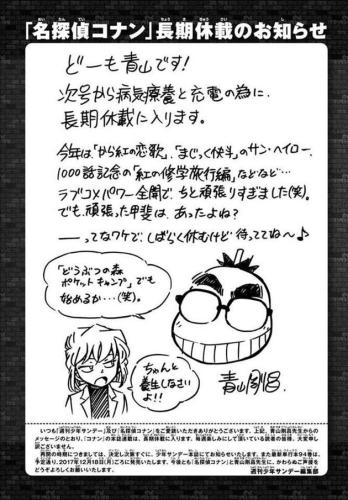 「名探偵コナン」長期休載のお知らせ
どーも青山です!
次号から病気療養と充電の為に、
長期休載に入ります。
今年は、「から紅の恋歌」、「まじっく快斗」のサン・ヘイロー、
1000話記念の「紅の修学旅行編」などなど…
ラブコメパワー全開で、ちと頑張りすぎました(笑)。
でも、頑張った甲斐は、あったよね?
——ってなワケで、しばらく休むけど待っててね〜♪
「どうぶつの森
ポケットキャンプ」でも
始めるか…(笑)。
ちゃんと
養生しなさい
よ!!
青山剛昌
いつも「週刊少年サンデー」及び「名探偵コナン」をご愛読いただきありがとうございます。上記、青山剛昌先生からの
メッセージのとおり、「コナン」の本誌連載は、長期休載に入ります。毎週楽しみにして頂いている読者の皆様、大変申し
訳ございません。
再開の時期につきましては、決定し次第すぐに、少年サンデー本誌にてお知らせいたします。また最新単行本94巻は、
予定どおり、2017年12月18日(月)ごろに発売いたします。今後とも「名探偵コナン」と青山剛昌先生に、かわらぬご声援を
どうぞよろしくお願いいたします。
週刊少年サンデー編集部